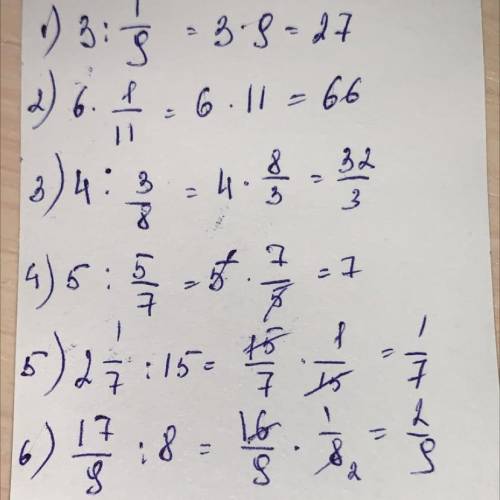 1) 3 : 1/9 = 3 · 9 = 27
2) 6 · 1/11 = 6 · 11 = 66
3) 4 : 3/8 = 4 · 8/3 = 32/3
4) 5 : 5/7 = 5 1 · 7/5 = 7
5) 2 1/7 : 15 = 15/7 · 1/15 = 1/7
6) 17/9 : 8 = 16/9 · 1/8 2 = 2/9